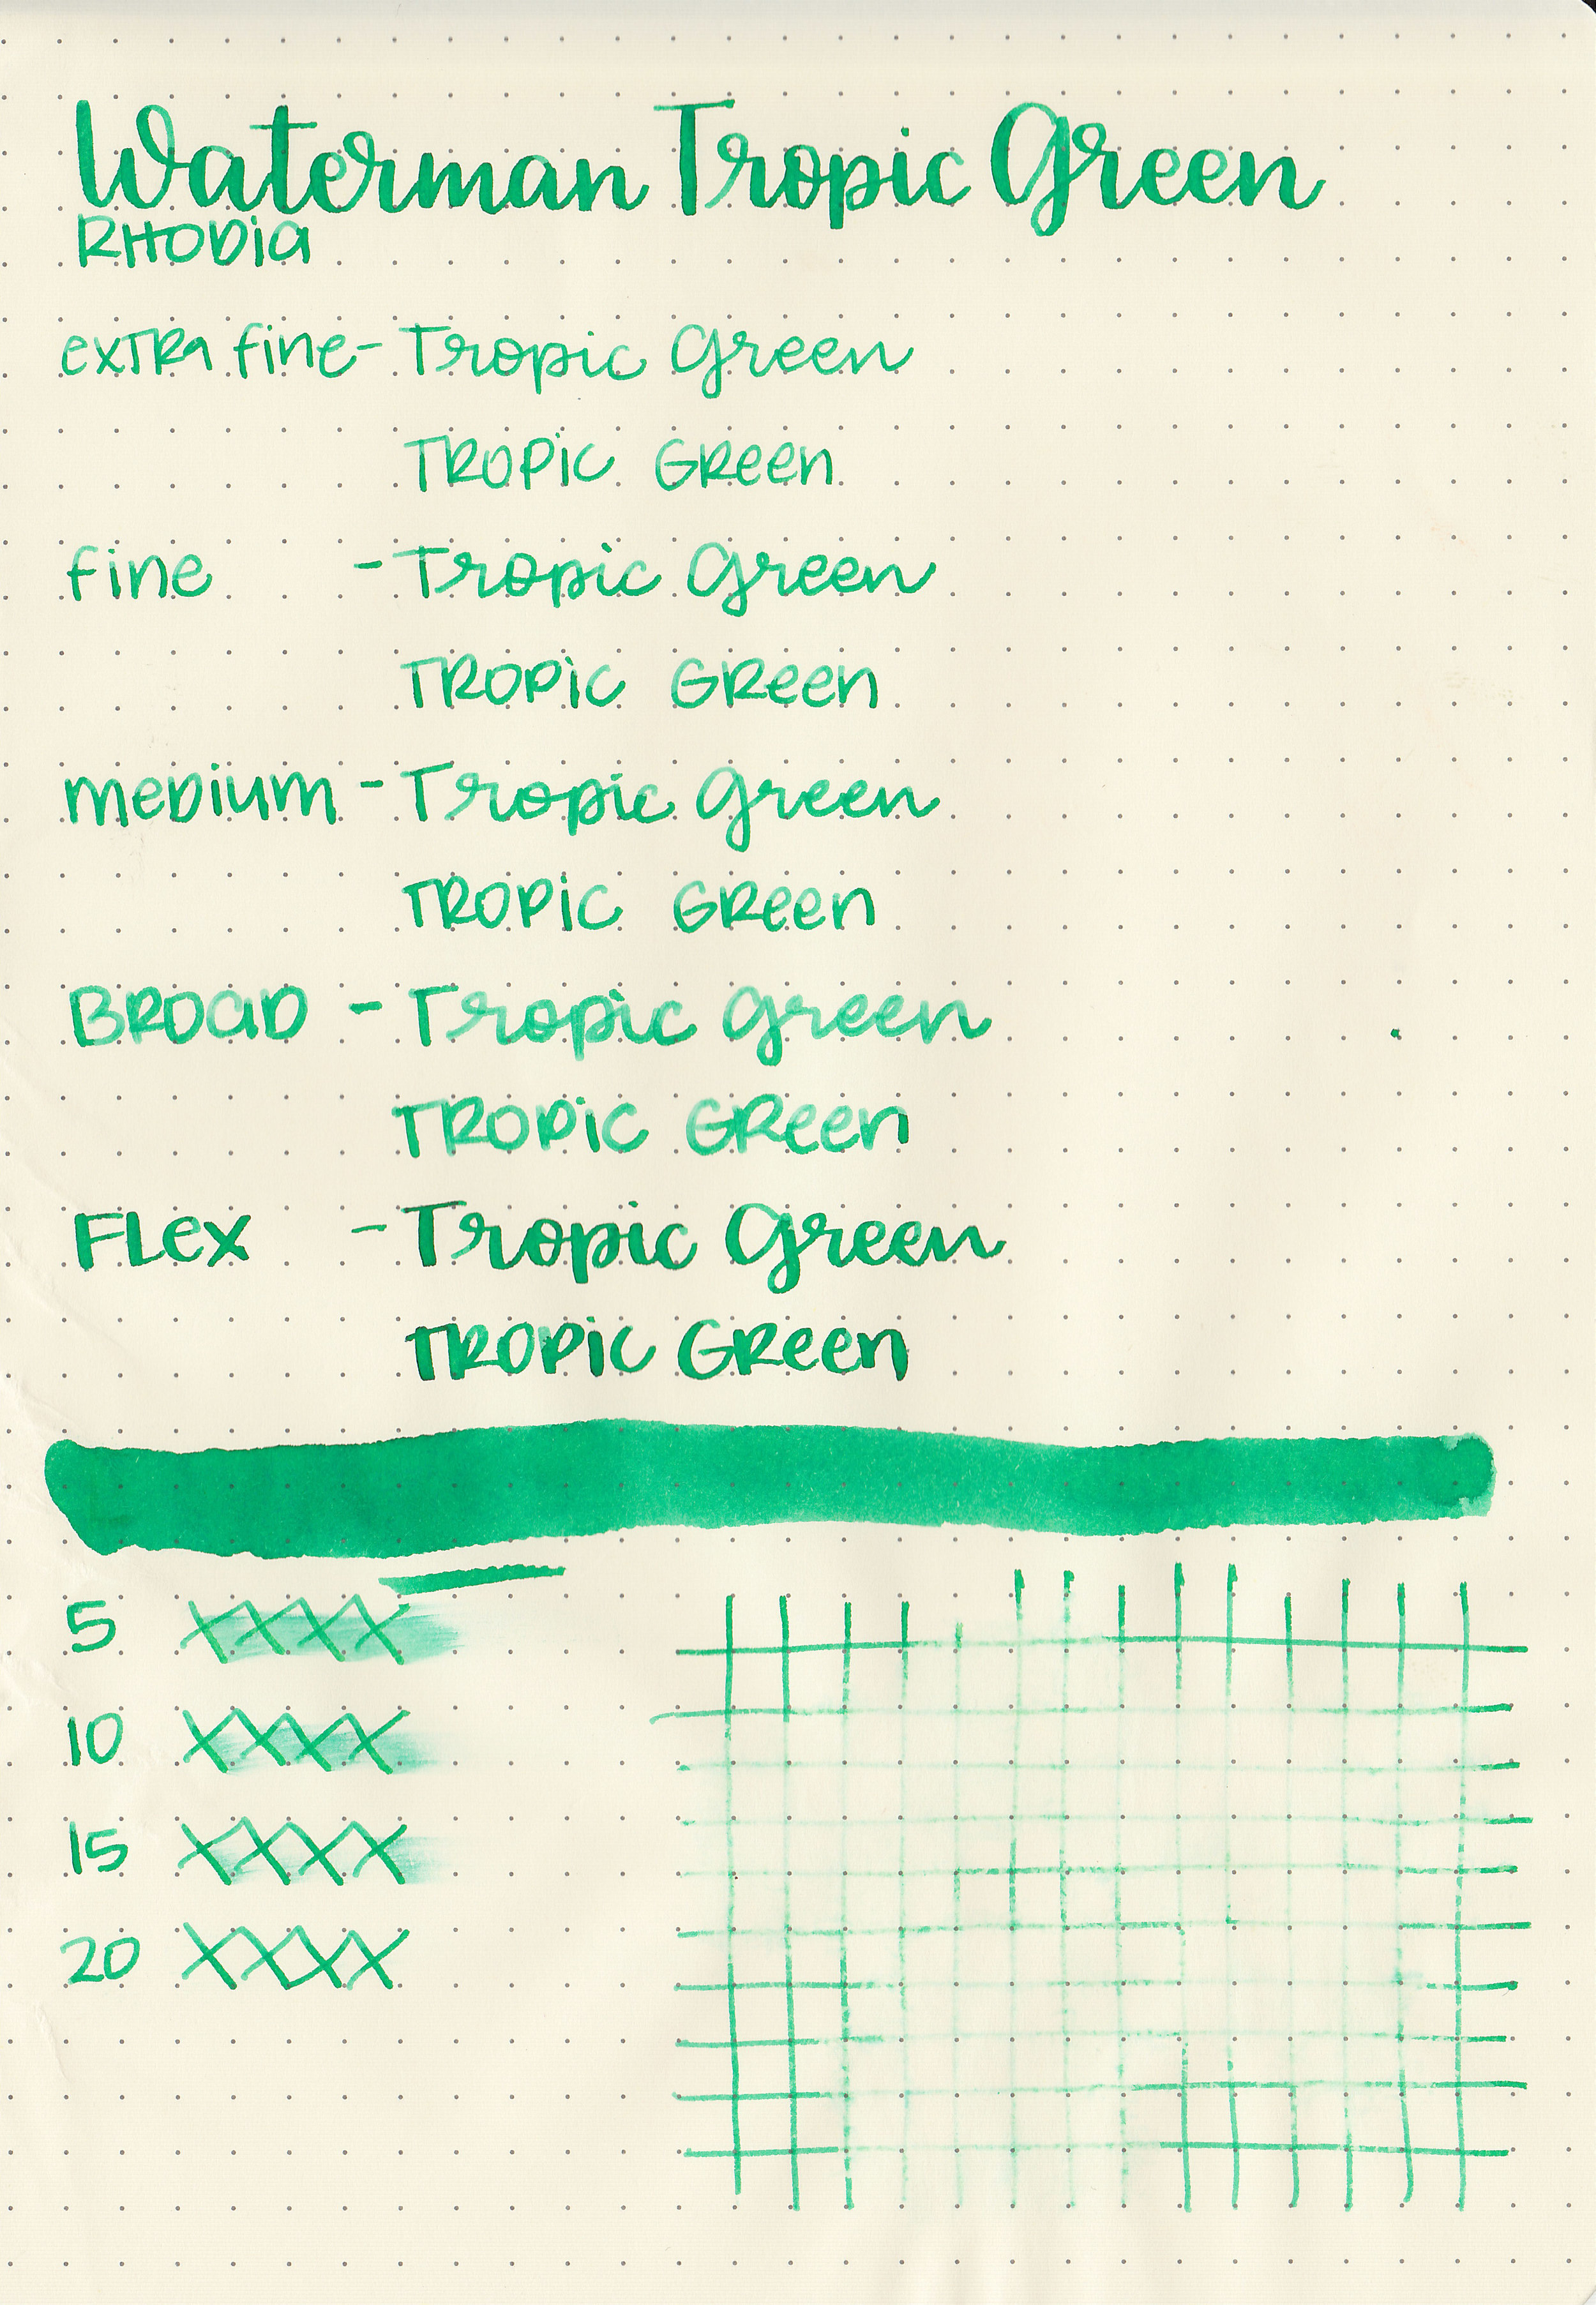 Waterman Tropic Green
RHODia
exTRa fine - Tropic Green
TROPiC GReen
fine - Tropic Green
TROPiC GReen
meDium - Tropic Green
TROPiC GReen
BROaD - Tropic Green
TROPiC GReen
FLex - Tropic Green
TROPiC GReen
5 XXXX
10 XXXX
15 XXXX
20 XXXX